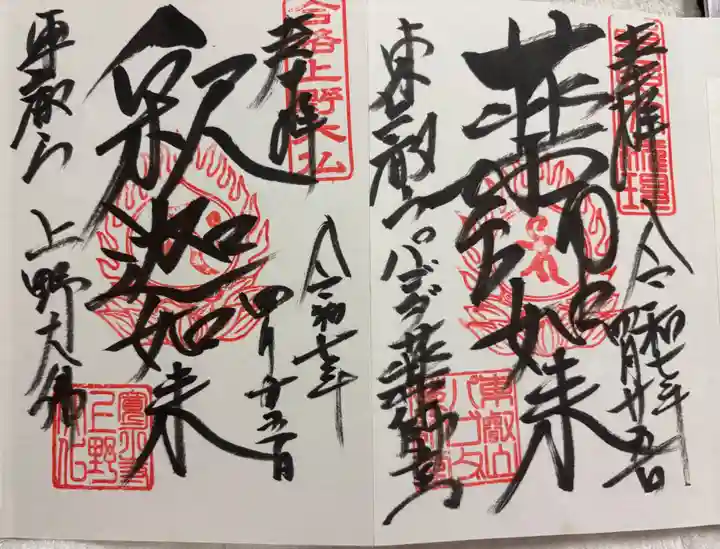 奉拝
薬師如来
令和七年
四月廿五日
東叡山パゴダ薬師堂
東叡山
パゴダ
奉拝
合格上野大仏
釈迦如来
令和七年
四月廿五日
東叡山 上野大佛
寛永寺
上野大仏